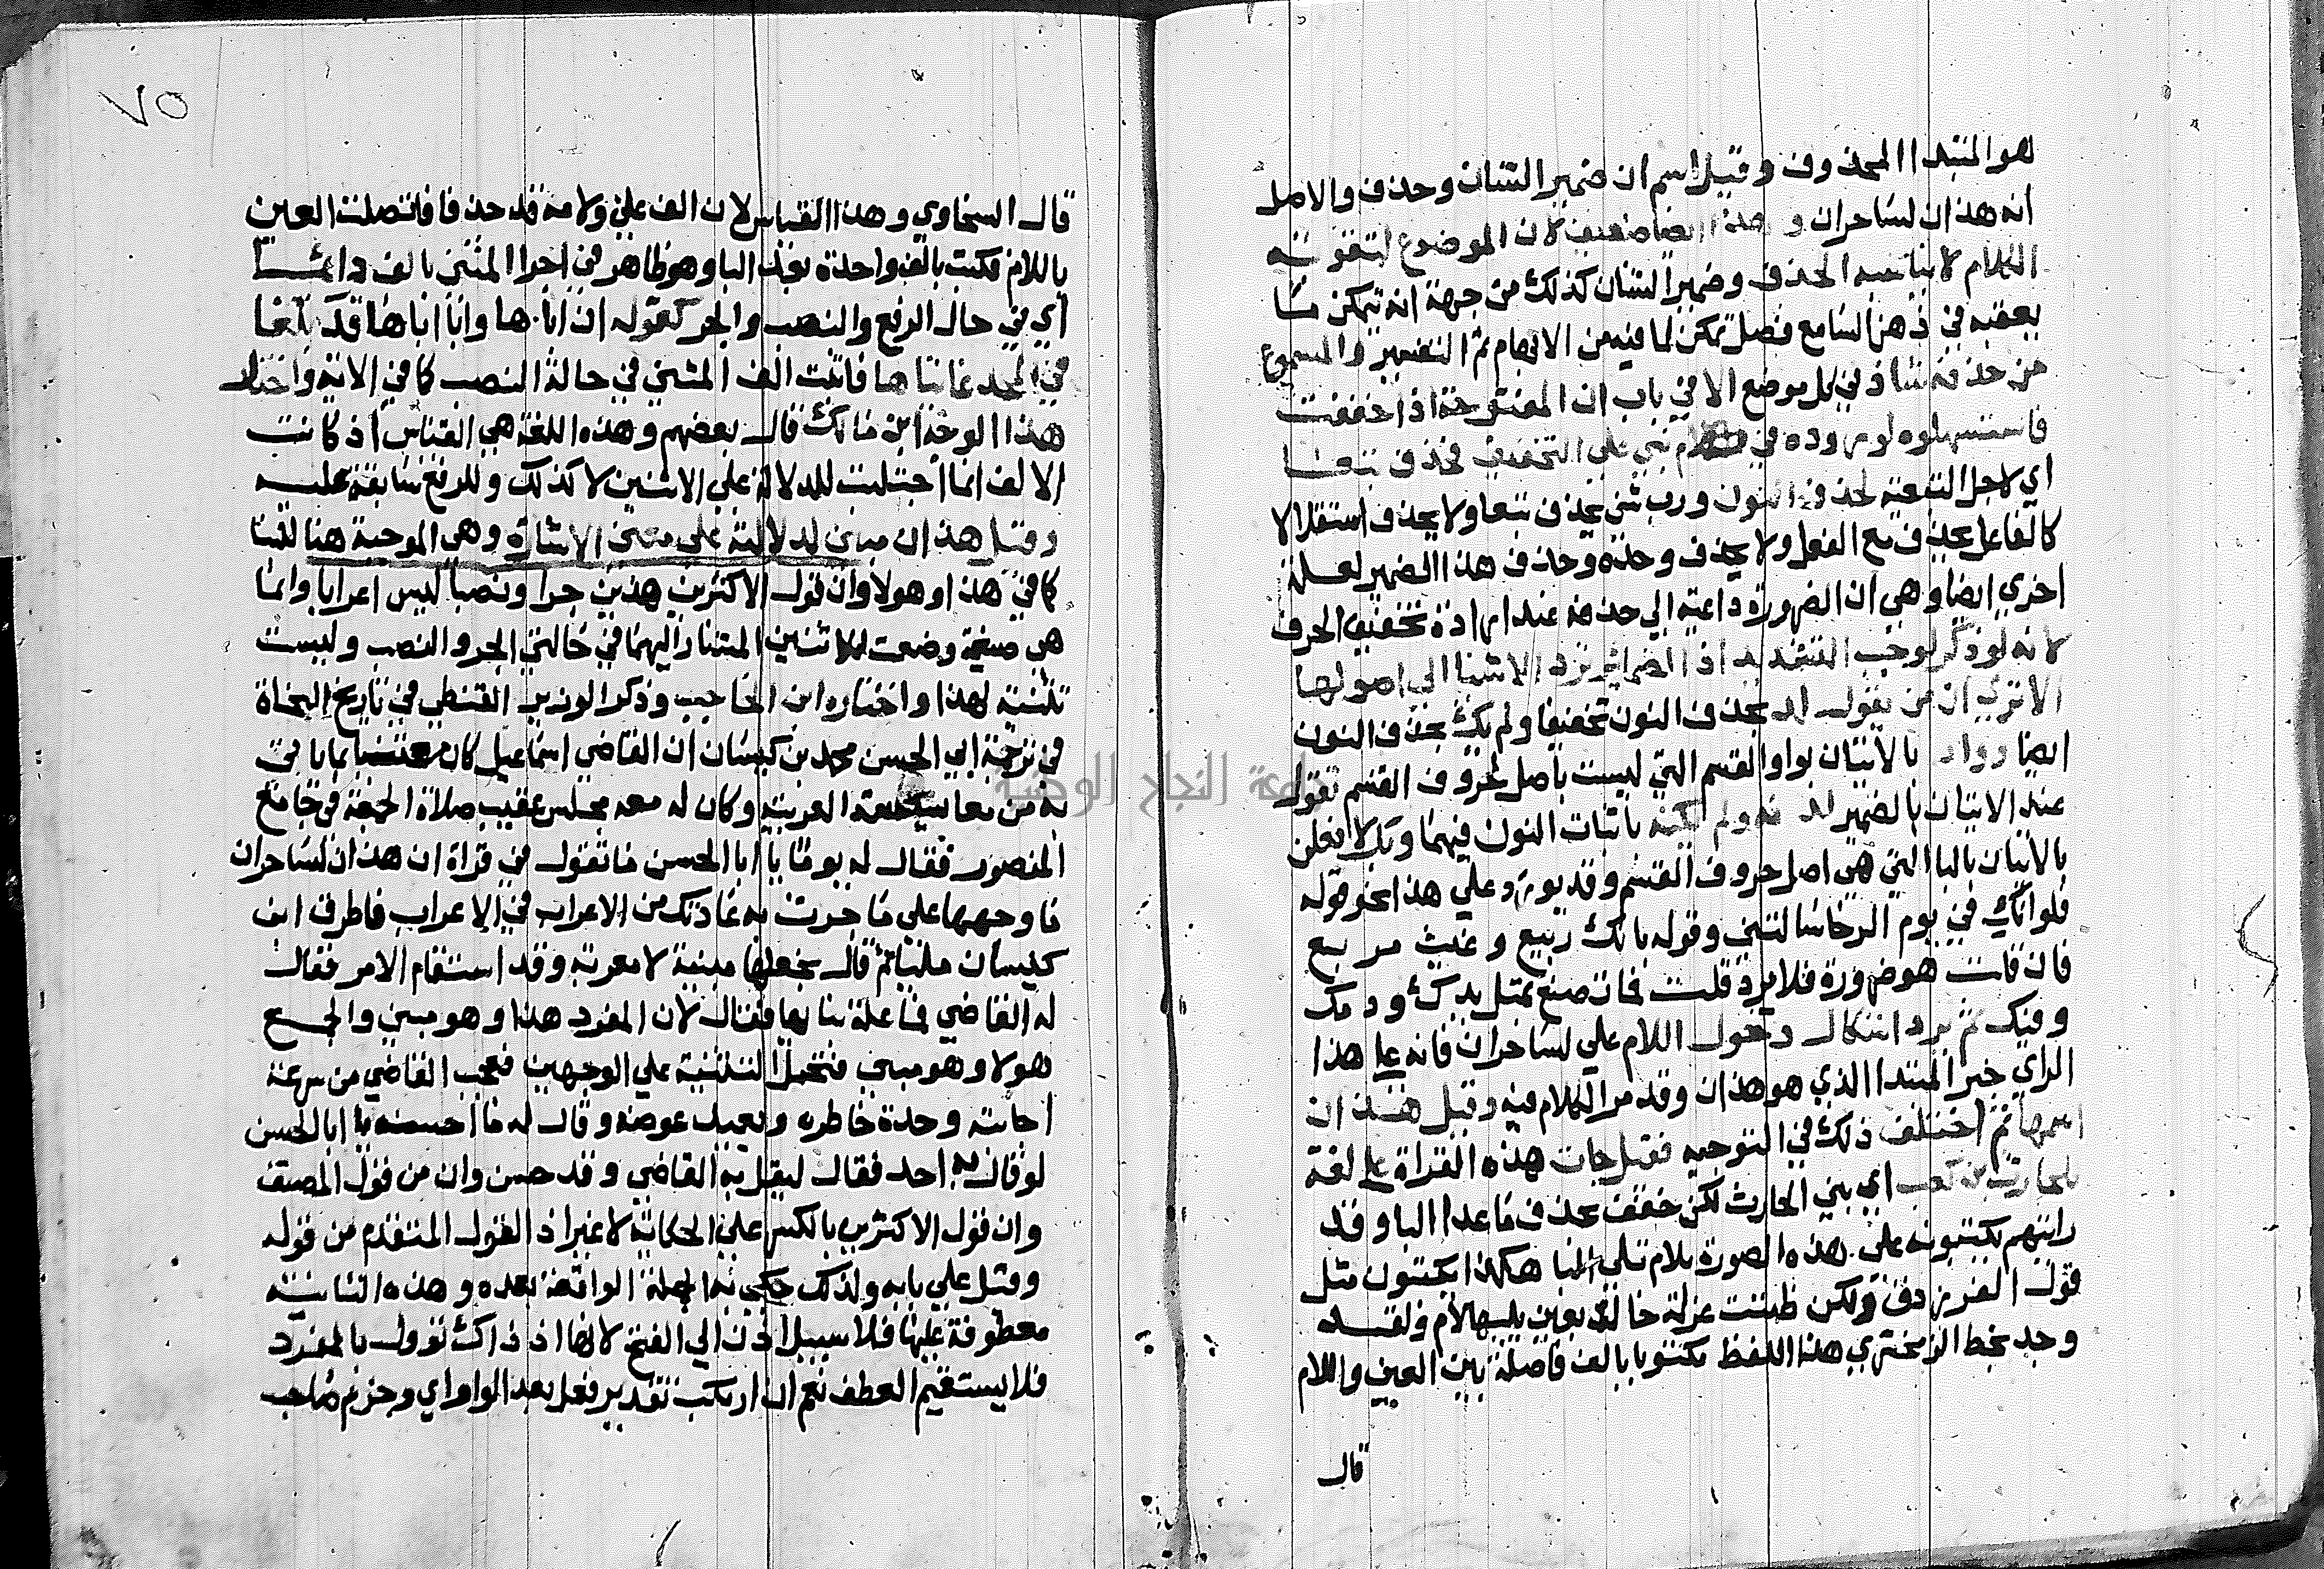 هو المبتدا المحذوف وقيل اسم ان ضمير الشان وحذف والاصل
انه هذان لساحران وهذا ايضا ضعيف لان الموضوع لتقوية
الكلام لا يناسبه الحذف وضمير الشان كذلك من جهة انه تمكن ما
يعقبه في ذهن السامع فضل تمكن لما فيه من الابهام ثم التفسير والمسموع
من حذفه شاذ في كل موضع الا في باب ان المفتوحة اذا خففت
فاستسهلوه لوروده في كلام بني علي التخفيف فحذف تبعا
اي لاجل التبعية لحذف النون ورب شي يحذف تبعا ولا يحذف استقلالا
كالفاعل يحذف مع الفعل ولا يحذف وحده وحذف هذا الضمير لعلة
اخري ايضا وهي ان الضرورة داعية الي حذفه عند ارادة تخفيف الحرف
لانه لو ذكر لوجب التشديد اذ الضماير ترد الاشيا الي اصولها
الا تري ان من يقول لد بحذف النون تخفيفا ولم يك بحذف النون
ايضا ووالله بالاتيان بواو القسم التي ليست باصل لحروف القسم تقول
عند الاتيان بالضمير لدنه ولم يكنه باثبات النون فيهما وبك لافعلن
بالاتيان بالبا التي هي اصل حروف القسم وقد يورد علي هذا نحو قوله
فلو انك في يوم الرخا سالتني وقوله بانك ربيع وغيث مريع
فان قلت هو ضرورة فلا يرد قلت فما تصنع بمثل يدك ودمك
وفيك ثم يرد اشكال دخول اللام علي لساحران فانه علي هذا
الراي خبر المبتدا الذي هو هذان وقد مر الكلام فيه وقيل هذان
اسمها ثم اختلف ذلك في التوجيه فقيل جات هذه القراة علي لغة
بلحارث بن كعب اي بني الحارث لكن خفف بحذف ما عدا البا وقد
رايتهم يكتبونه علي هذه الصورة بلام تلي البا هكذا يكتبون مثل
قول الفرزدق ولكن طفت عزلة خالد بعين يليها لام ولقد
وجد بخط الزمخشري هذا اللفظ مكتوبا بالف فاصلة بين العين واللام
قال
٧٥
قال السخاوي وهذا القياس لان الف علي ولامه قد حذفا فاتصلت العين
باللام فكتبت بالف واحدة بعد البا وهو ظاهر في اجرا المثني بالف دائما
اي في حال الرفع والنصب والجر كقوله ان اباها وابا اباها قد بلغا
في المجد غايتاها فاثبت الف المثني في حالة النصب كما في الاية واختار
هذا الوجه ابن مالك قال بعضهم وهذه اللغة هي القياس اذ كانت
الالف انما اجتلبت للدلالة علي الاثنين لا كذلك وللرفع سابقة عليه
وقيل هذان مبني لدلالته علي معني الاشارة وهي الموجبة هنا للبنا
كما في هذا وهولا وان قول الاكثرين هذين جرا ونصبا ليس اعرابا وانما
هي صيغة وضعت للاثنين المشار اليهما في حالتي الجر والنصب وليست
تثنية لهذا واختاره ابن الحاجب وذكر الوزير القفطي في تاريخ النحاة
في ترجمة ابي الحسن محمد بن كيسان ان القاضي اسماعيل كان معتنيا بما ياتي
به من معاني العربية وكان له معه مجلس عقيب صلاة الجمعة في جامع
المنصور فقال له يوما يا ابا الحسن ما تقول في قراة ان هذان لساحران
ما وجهها علي ما جرت به عادتك من الاعراب في الاعراب فاطرق ابن
كيسان مليا ثم قال نجعلها مبنية لا معربة وقد استقام الامر فقال
له القاضي فما علة بنايها فقال لان المفرد هذا وهو مبني والجمع
هولا وهو مبني فتحمل التثنية علي الوجهين فعجب القاضي من سرعة
اجابته وحدة خاطره وبعيد غوصه وقال له ما احسنه يا ابا الحسن
لو قال به احد فقال ليقل به القاضي وقد حسن وان من قول المصنف
وان قول الاكثرين بالكسر علي الحكاية لا غير اذ القول المتقدم من قوله
وقيل علي بابه ولذلك حكي به الجملة الواقعة بعده وهذه الثانية
معطوفة عليها فلا سبيل اذن الي الفتح لانها اذ ذاك تؤول بالمفرد
فلا يستقيم العطف نعم ان ارتكب تقدير فعل بعد الواو اي وجزم صاحب
جامعة النجاح الوطنية